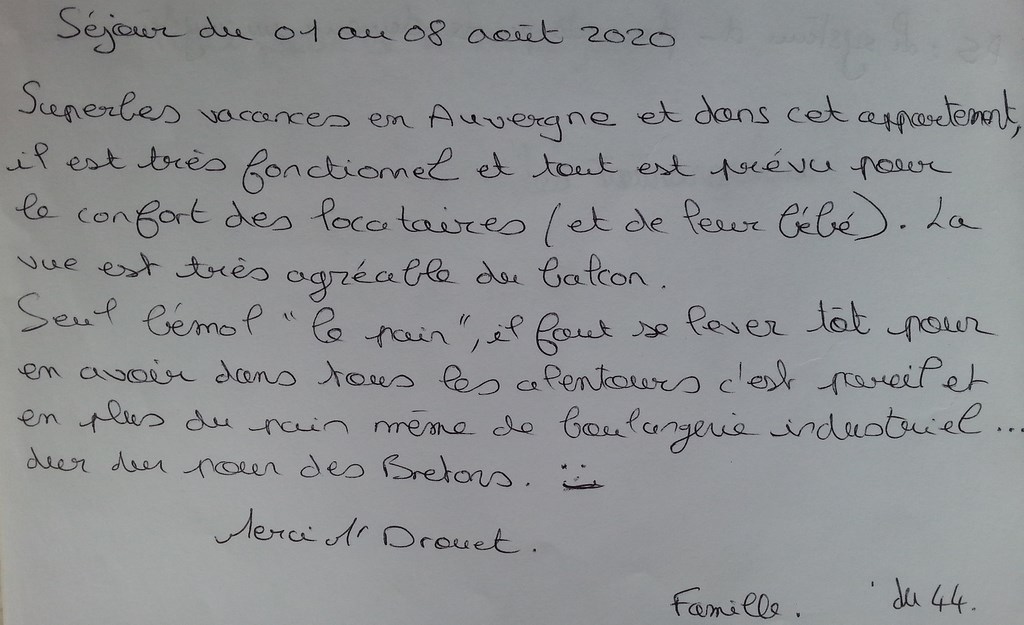 Séjour du 01 au 08 août 2020
Superbes vacances en Auvergne et dans cet appartement,
il est très fonctionnel et tout est prévu pour
le confort des locataires (et de leur bébé). La
vue est très agréable du balcon.
Seul bémol "le pain", il faut se lever tôt pour
en avoir dans tous les alentours c'est pareil et
en plus du pain même de boulangerie industriel...
dur dur pour des Bretons.
Merci Mr Drouet.
Famille. du 44.